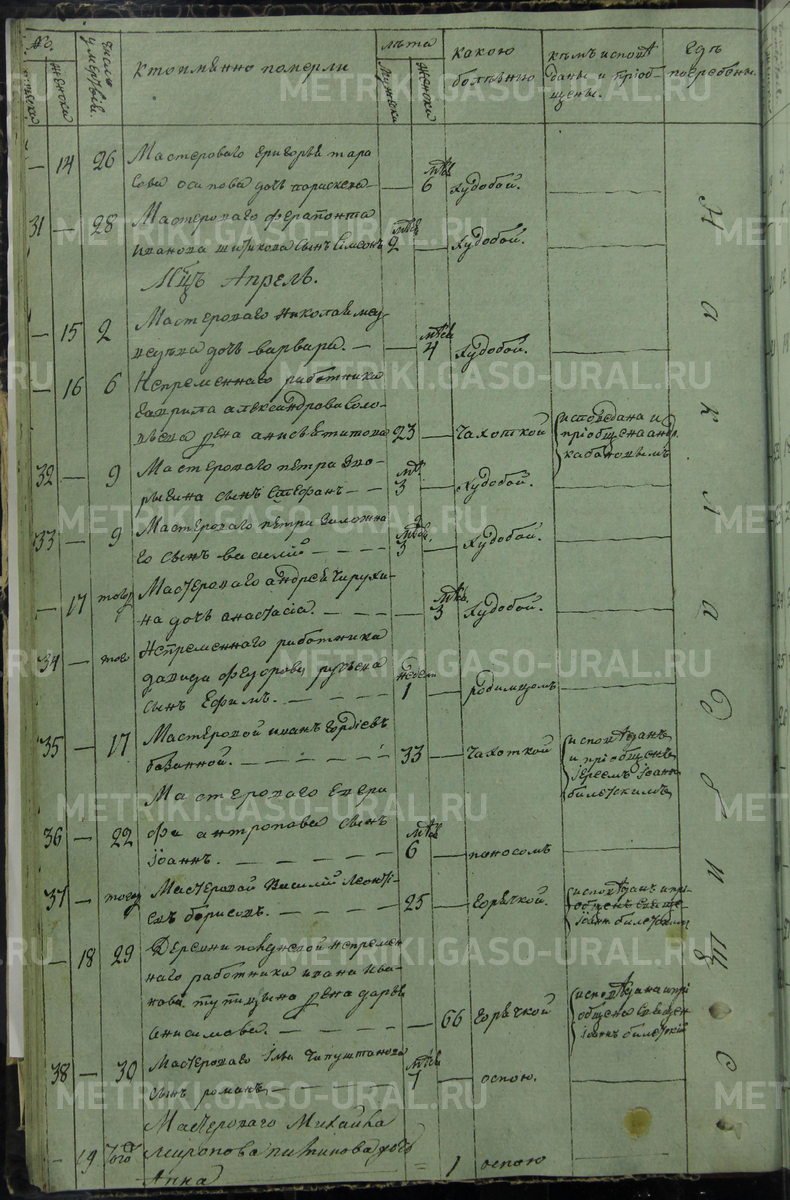 №.
мужска
женска
число умертвіи
кто имянно померли
лѣта
мужска
женска
какою болѣзнию
кѣмъ исповѣданы и пріобщены.
гдѣ погребены.
— 14 26 Мастероваго григорья тара
сова осипова дочь параскева — мѣся 6 худобой.
31 — 28 Мастероваго ферапонта
иванова шишкова сынъ симеонъ мѣся 2 — худобой.
Мцъ Апрель.
— 15 2 Мастероваго николая мед
ведева дочь варвара. — — мѣся 4 худобой.
— 16 6 Непременнаго работника
гаврила александрова соло
вьева жена анисья титова 23 — чахоткой исповедана и
пріобщена андр.
кабановымъ
32 — 9 Мастероваго петра
сынъ стефанъ — — мѣ. 3 — худобой.
33 — 9 Мастероваго петра
го сынъ василій — — — мѣся 3 — худобой.
— 17 тогож Мастероваго андрея чирухи
на дочь анастасіа. — — — мѣся. 3 худобой.
34 — того Непременнаго работника
давида федорова
сынъ Ефимъ. — — — — недели 1 — родимцомъ
35 — 17 Мастеровой иванъ гордѣевъ
базанной. — — — — 33 — чахоткой исповѣданъ
и пріобщенъ
іереемъ іоанн
билетскимъ
Мастероваго
36 — 22 фа антропова сынъ
іоаннъ. — — — — мѣся 6 — поносомъ
37 — тогож Мастеровой Василій леонтъ
евъ борисовъ. — — — 25 — горячкой. исповѣданъ и прі
общенъ свяще
іоанн билетским
— 18 29 Деревни непремен
наго работника ивана ива
нова путимцына жена дарья
анисимова. — — — — 66 горячкой исповѣдана и прі
общена священ
іоанн билетскій
38 — 30 Мастероваго Ільи чапуштанова
сынъ романъ мѣся 7 — оспою.
Мастероваго Михайла
— 19 того миронова питинова дочь
Анна = 1 оспою
На кладбищѣ
METRIKI.GASO-URAL.RU